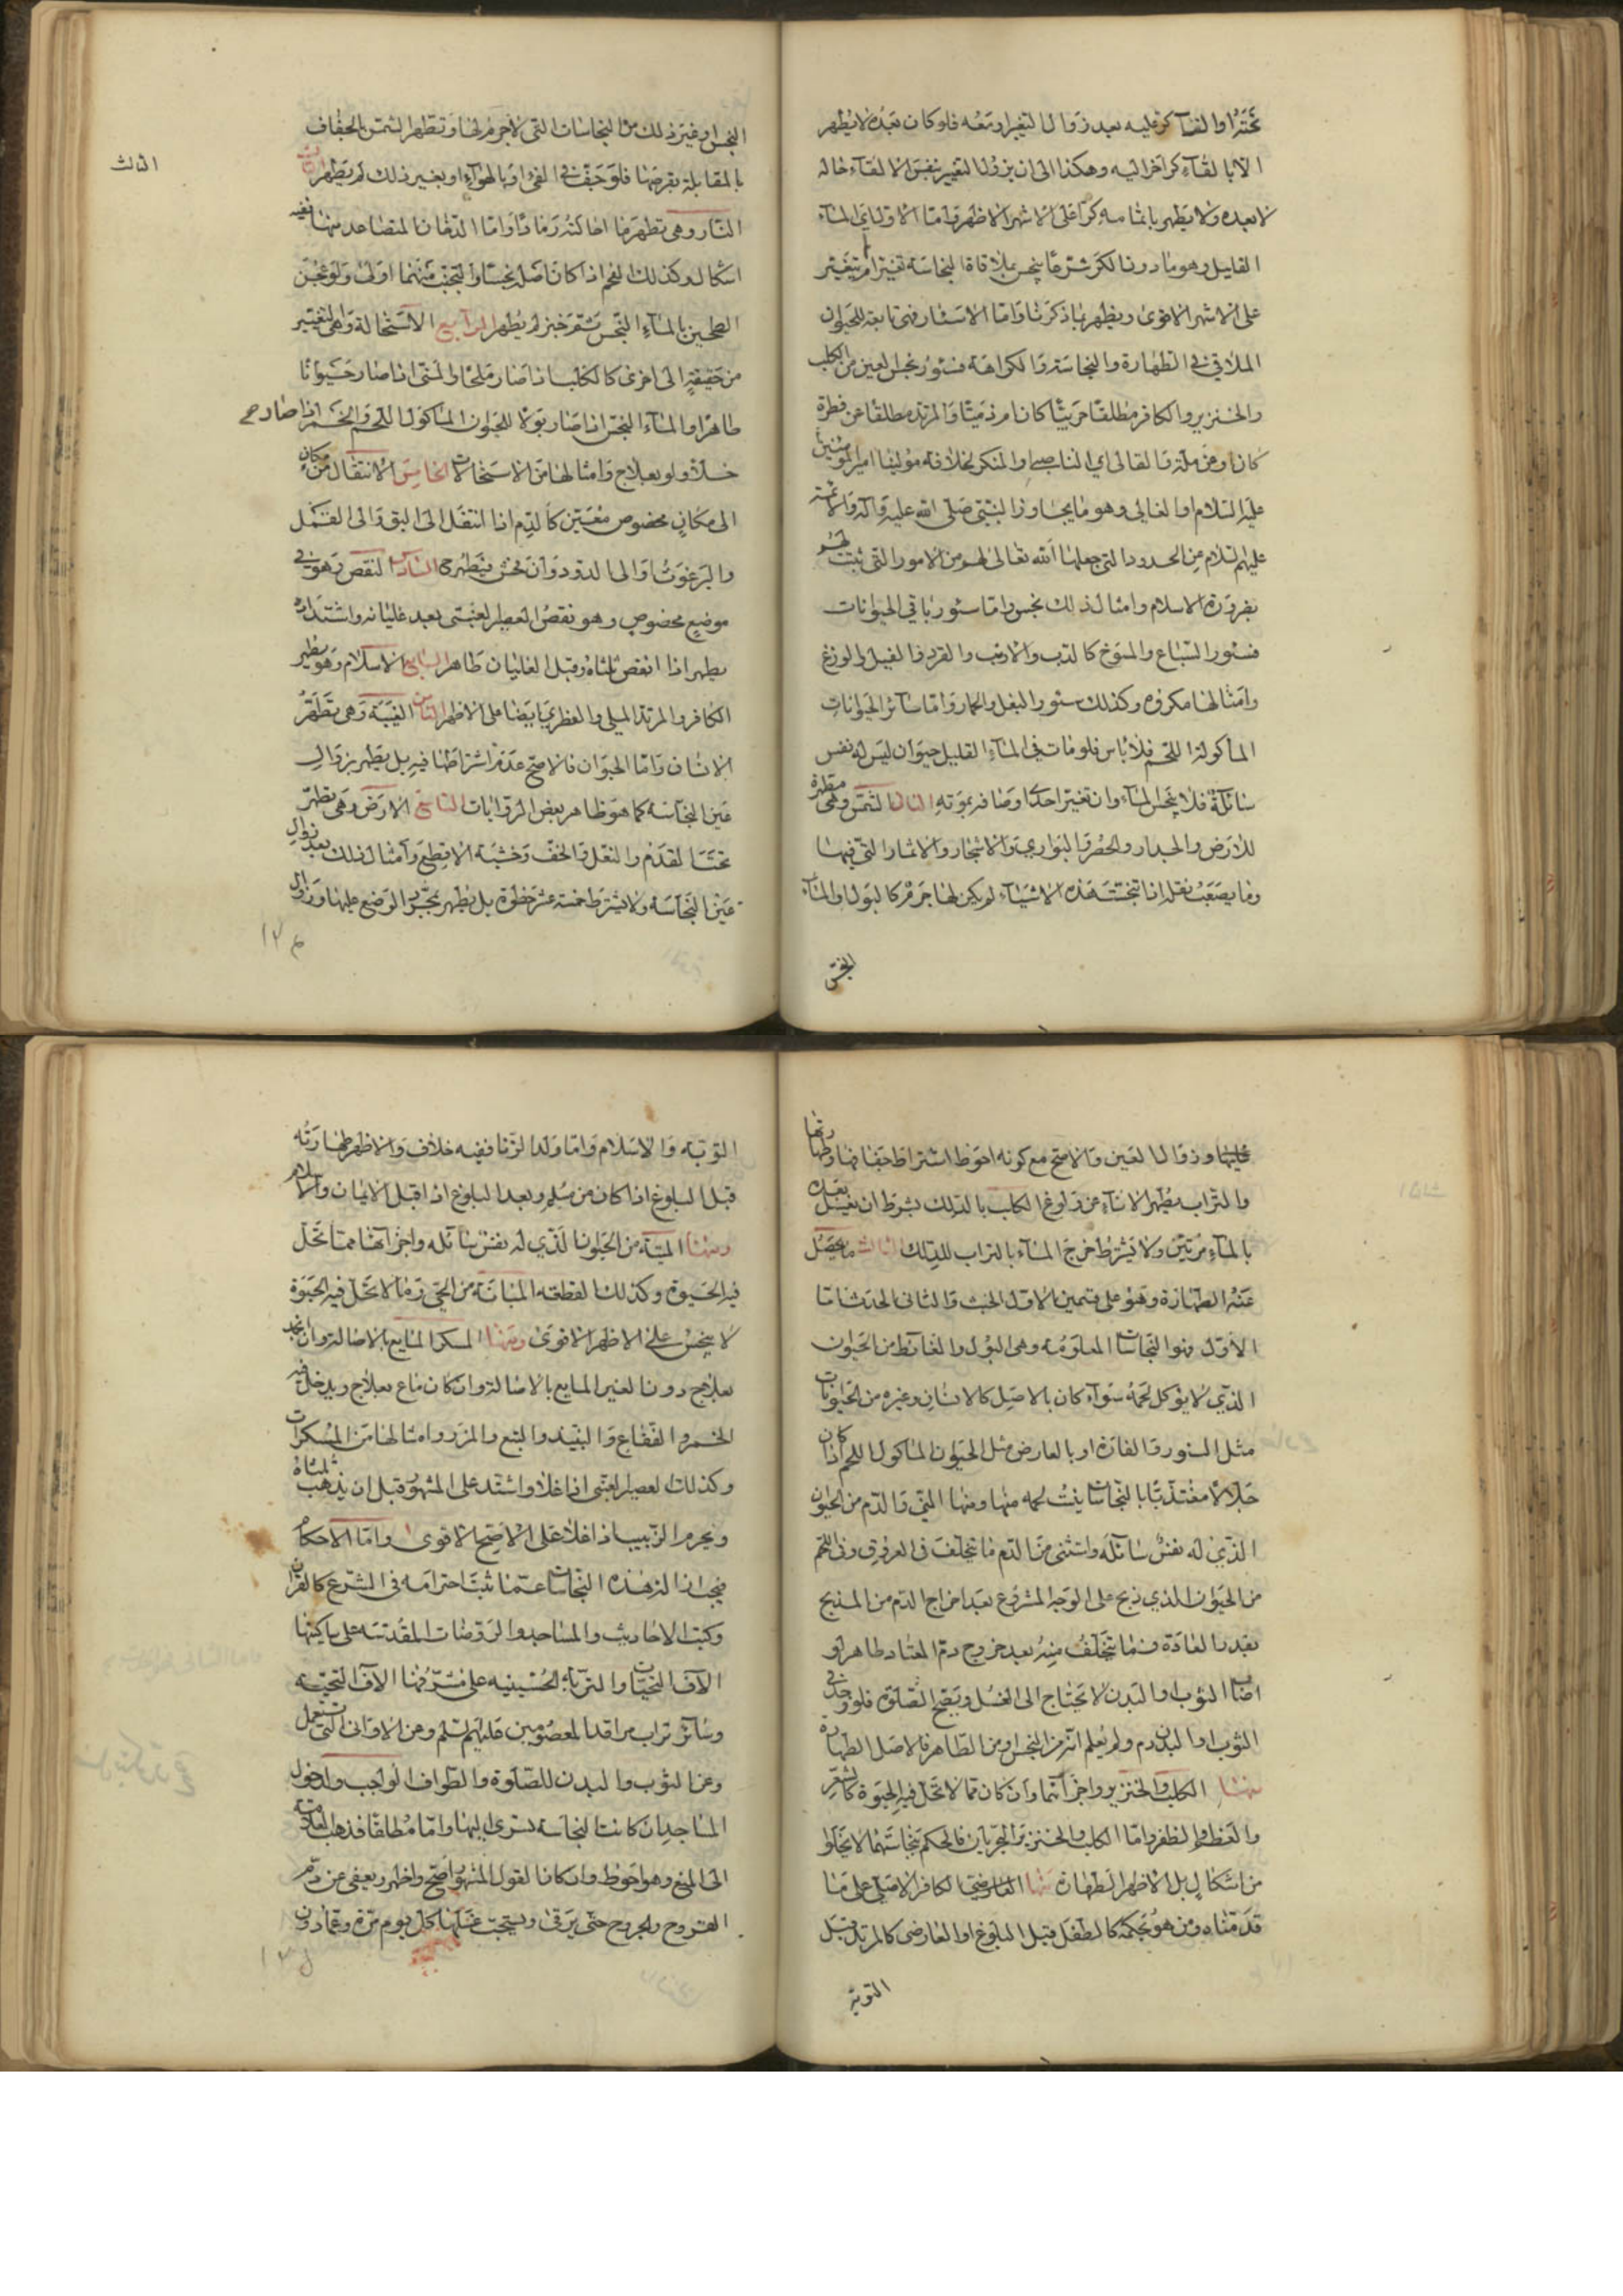 تحتها والقاء كر عليه بعد زوال التغير او معه فلو كان بعده لا يطهر
الا بالقاء كر اخر اليه وهكذا الى ان يزول التغير بنفس الالقاء حاله
لا بعده ولا يطهر باتمامه كرا على الاشهر الاظهر واما الاول اي الماء
القليل وهو ما دون الكر شرعا ينجس بملاقاة النجاسة تغير ام لم يتغير
على الاشهر الاقوى ويطهر بما ذكرنا واما الاسئار فهي تابعة للحيوان
الملاقي في الطهارة والنجاسة والكراهة فسؤر نجس العين من الكلب
والخنزير والكافر مطلقا حربيا كان ام ذميا والمرتد مطلقا عن فطرة
كان او عن ملة والقالي اي الناصبي والمنكر لخلافة مولينا امير المؤمنين
عليه السلام والغالي وهو ما يجاوز النبي صلى الله عليه وآله والائمة
عليهم السلام من الحدود التي جعلها الله تعالى لهم من الامور التي ثبتت
بضرورة الاسلام وامثال ذلك نجس واما سئور باقي الحيوانات
فسئور السباع والمسوخ كالدب والارنب والقرد والفيل والوزغ
وامثالها مكروه وكذلك سئور البغل والحمار واما سائر الحيوانات
المأكولة اللحم فلا باس فلو مات في الماء القليل حيوان ليس له نفس
سائلة فلا ينجس الماء وان تغير احد اوصافه بموته الثالث الشمس وهي مطهرة
للارض والجدار والحصر والبواري والاشجار والاثمار التي فيها
وما يصعب نقله اذا تنجست هذه الاشياء لو يكن لها جرم كالبول والماء
النجس
الثالث
النجس او غير ذلك من النجاسات التي لا جرم لها وتطهر الشمس بالجفاف
بالمقابلة بقرصها فلو جف في الفئ او بالهواء او بغير ذلك لم يطهر الثالث
النار وهي تطهر ما احالته رمادا واما الدخان المتصاعد منها ففيه
اشكال وكذلك الفحم اذا كان اصله نجسا والتجنب منهما اولى ولو عجن
الطحين بالماء النجس ثم خبز لم يطهر الرابع الاستحالة وهي التغيير
من حقيقة الى اخرى كالكلب اذا صار ملحا والمني اذا صار حيوانا
طاهرا والماء النجس اذا صار بولا للحيوان المأكول اللحم والخمر اذا صار
خلا ولو بعلاج وامثالها من الاستحالات الخامس الانتقال من مكان
الى مكان مخصوص معين كالدم اذا انتقل الى البق والى القمل
والبرغوث والى الدود وان فحش فيطهر ح السادس النقص وهو في
موضع مخصوص وهو نقص العصير العنبي بعد غليانه واشتداده
يطهر اذا انقص ثلثاه وقبل الغليان طاهر السابع الاسلام وهو يطهر
الكافر والمرتد الملي والفطري ايضا على الاظهر الثامن الغيبة وهي تطهر
الانسان واما الحيوان فالاصح عدم اشتراطها فيه بل يطهر بزوال
عين النجاسة كما هو ظاهر بعض الروايات التاسع الارض وهي تطهر
تحت القدم والنعل والخف وخشبة الاقطع وامثال ذلك بعد زوال
عين النجاسة ولا يشترط خمسة عشر خطوة بل يطهر بمجرد الوضع عليها وزوال
عليها وزوال العين والاصح مع كونه احوط اشتراط جفافها وطهارتها
والتراب مطهر الاناء من ولوغ الكلب بالدلك بشرط ان يغسل بعده
بالماء مرتين ولا يشترط مزج الماء بالتراب للدلك الثالث ما يحصل
عنه الطهارة وهو على قسمين الاول الخبث والثاني الحدث اما
الاول فهو النجاسات المعلومة وهي البول والغائط من الحيوان
الذي لا يؤكل لحمه سواء كان بالاصل كالانسان وغيره من الحيوانات
مثل السنور والفارة او بالعارض مثل الحيوان المأكول اللحم اذا كان
جلالا مغتذيا بالنجاسات ينبت لحمه منها ومنها المني والدم من الحيوان
الذي له نفس سائلة واستثني من الدم ما يتخلف في العروق وفي اللحم
من الحيوان الذي ذبح على الوجه المشروع بعد اخراج الدم من المذبح
بقدر العادة فما تتخلف منه بعد خروج دم المعتاد طاهر لو
اصاب الثوب او البدن لا يحتاج الى الغسل ويصح الصلوة فلو وجد في
الثوب او البدن دم ولم يعلم انه من النجس او من الطاهر فالاصل الطهارة
منها الكلب والخنزير واجزائهما وان كان مما لا تحل فيه الحيوة كالشعر
والعظم والظفر واما الكلب والخنزير البحريان فالحكم بنجاستهما لا يخلوا
من اشكال بل الاظهر الطهارة منها الكافر الاصلي على ما
قدمناه ومن هو بحكمه كالطفل قبل البلوغ او العارضي كالمرتد قبل
التوبة
التوبة والاسلام واما ولد الزنا ففيه خلاف والاظهر طهارته
قبل البلوغ اذا كان من مسلم وبعد البلوغ اذا قبل الايمان والاسلام
ومنها الميتة من الحيوان الذي له نفس سائلة واجزائها مما تحل
فيه الحيوة وكذلك القطعة المبانة من الحي وما لا تحل فيه الحيوة
لا ينجس على الاظهر الاقوى ومنها المسكر المايع بالاصالة وان انجمد
بعلاج دون الغير المايع بالاصالة وان كان ماع بعلاج ويدخل فيه
الخمر والفقاع والنبيذ والبتع والمزر وامثالها من المسكرات
وكذلك العصير العنبي اذا غلا واشتد على المشهور قبل ان يذهب ثلثاه
ويحرم الزبيب اذا غلا على الاصح الاقوى واما الاحكام
فيجب ازالة هذه النجاسات عما ثبت احترامه في الشرع كالقرآن
وكتب الاحاديث والمساجد والروضات المقدسة على ساكنيها
الاف التحيات والتربة الحسينيه على مشرفها الاف التحية
وسائر تراب مراقد المعصومين عليهم سلم وعن الاواني التي تستعمل
وعن الثوب والبدن للصلوة والطواف الواجب ولدخول
المساجد ان كانت النجاسة تسري اليها واما مطلقا فذهب
الى المنع وهو احوط وان كان القول المشهور اصح واظهر ويعفى عن دم
القروح والجروح حتى يرقى ويستحب غسلها كل يوم مرة وعما دون